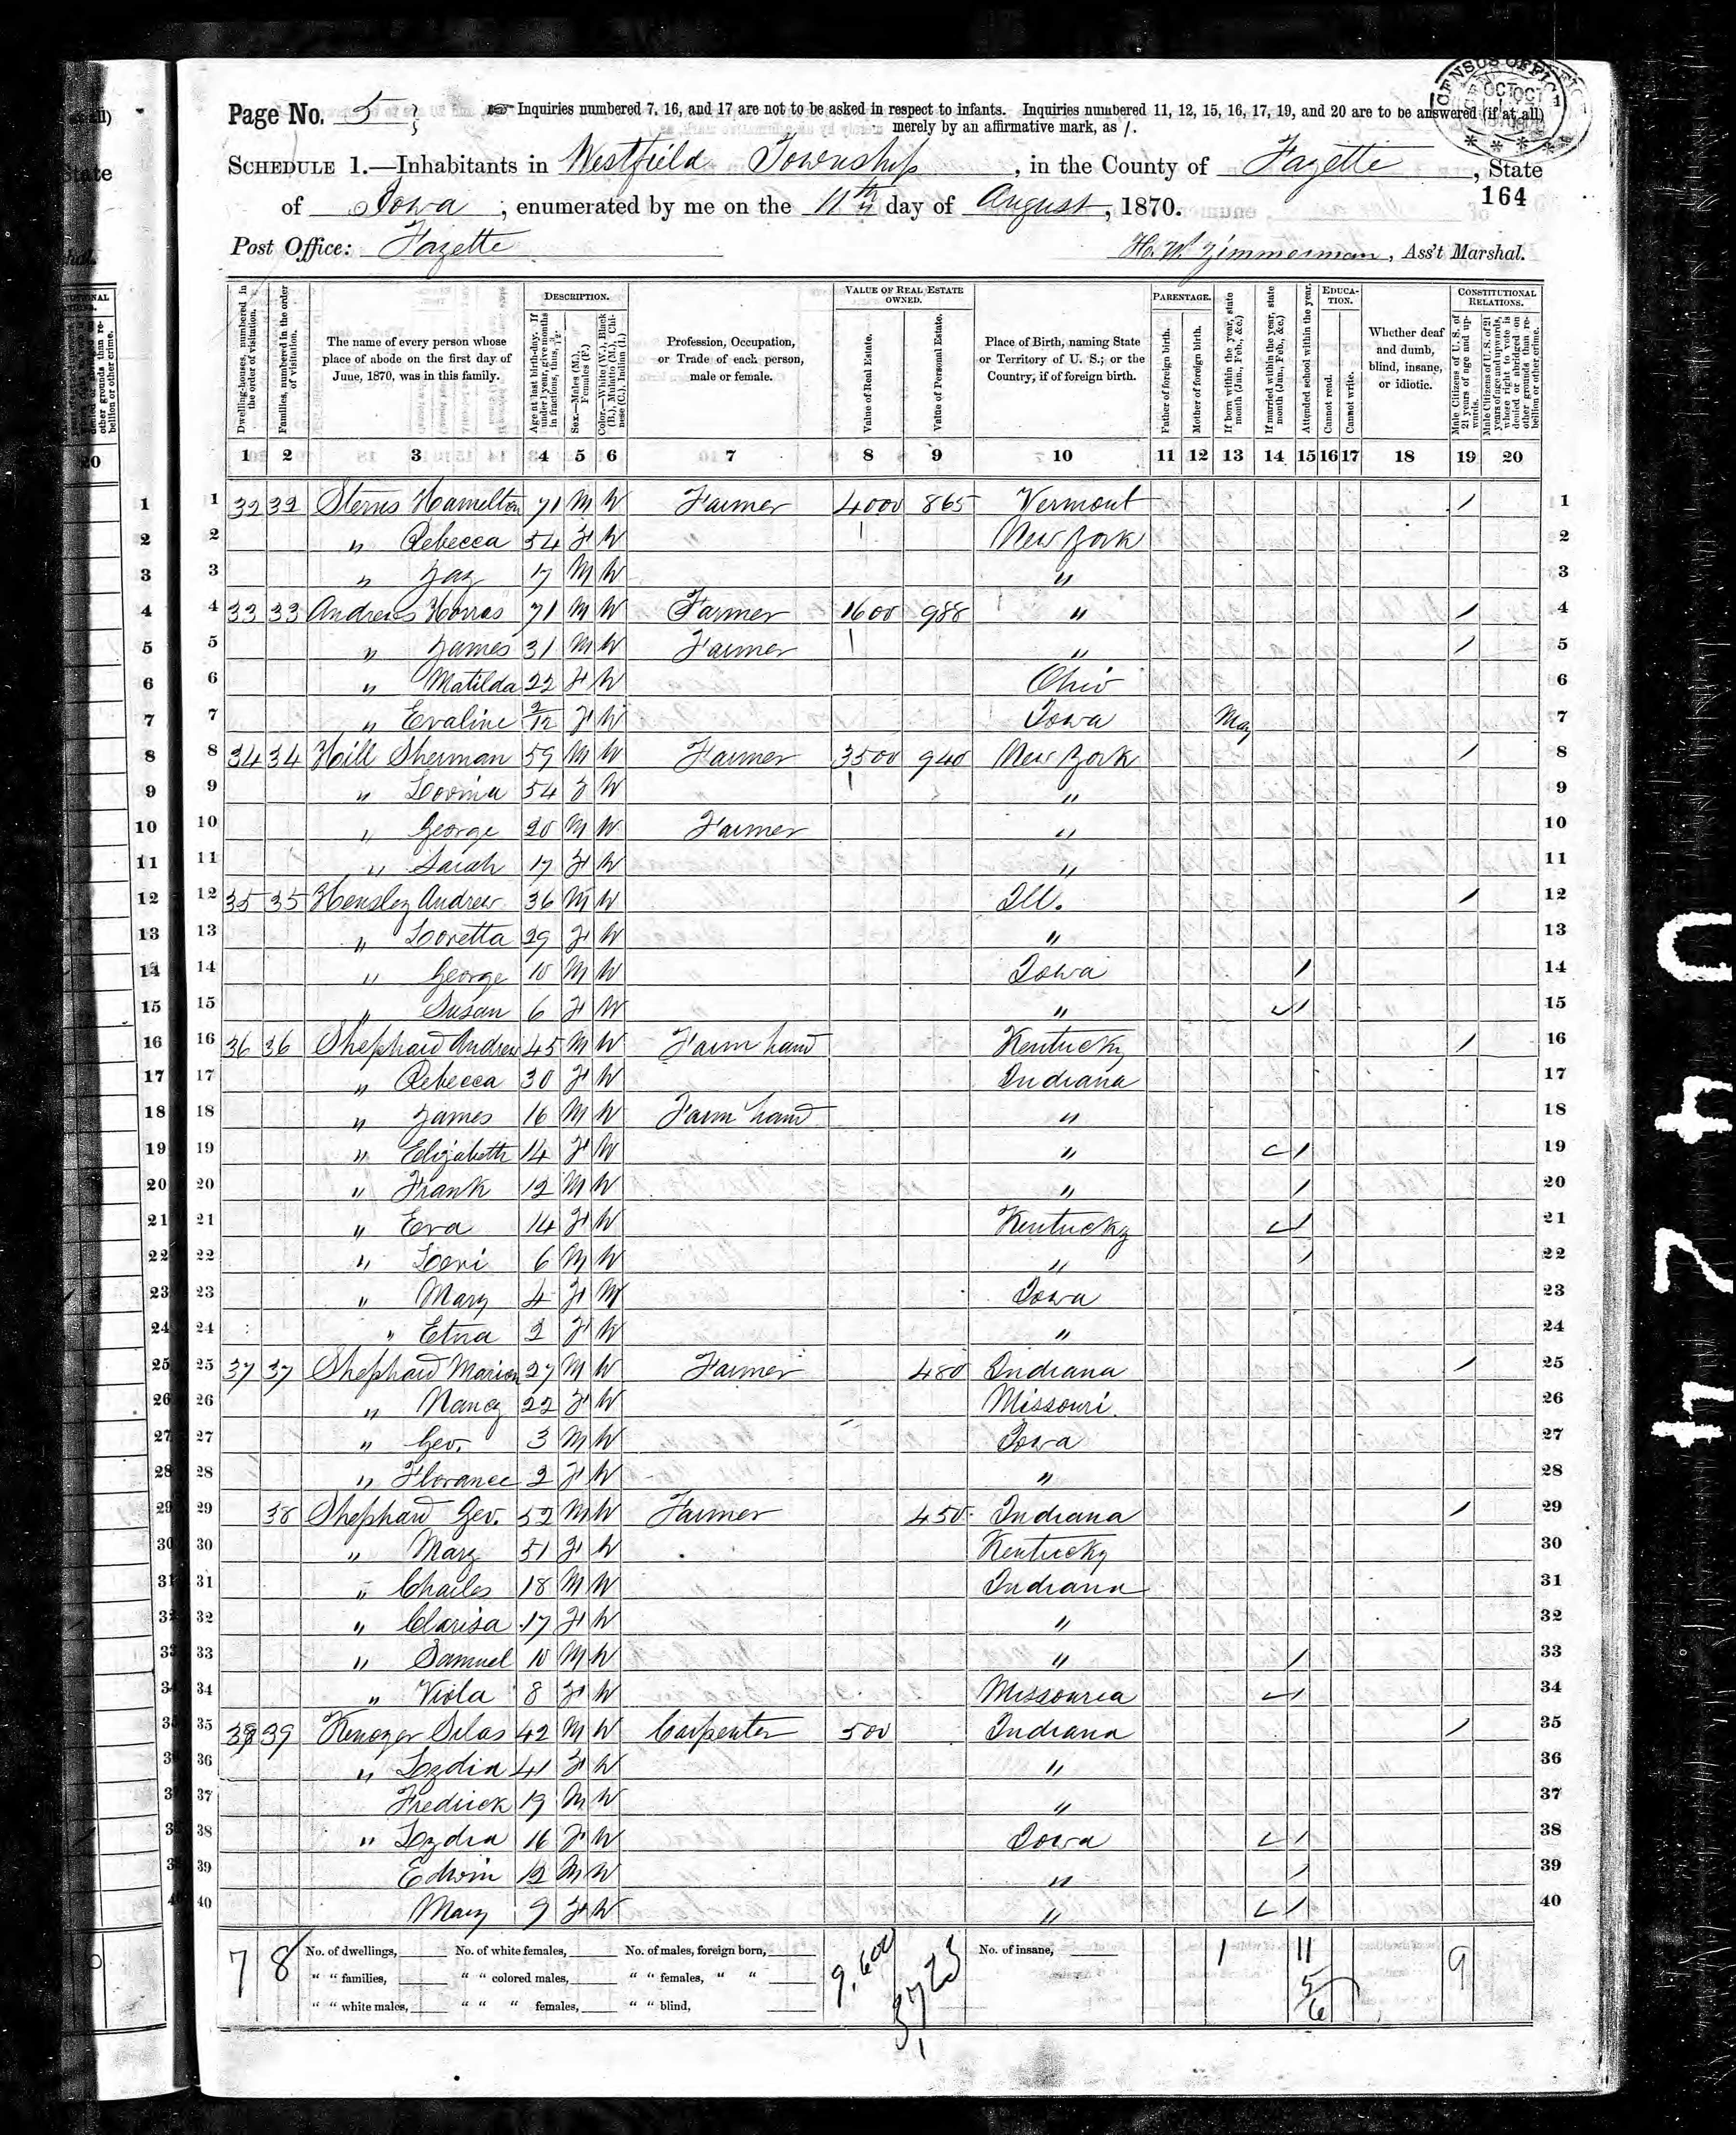 Page No. 5
☞ Inquiries numbered 7, 16, and 17 are not to be asked in respect to infants. Inquiries numbered 11, 12, 15, 16, 17, 19, and 20 are to be answered (if at all)
merely by an affirmative mark, as /.
CENSUS OFFICE
OCT
SCHEDULE 1.—Inhabitants in Westfield Township, in the County of Fayette, State
of Iowa, enumerated by me on the 11th day of August, 1870.
164
Post Office: Fayette
H. W. Zimmerman, Ass't Marshal.
Dwelling-houses, numbered in the order of visitation.
Families, numbered in the order of visitation.
The name of every person whose place of abode on the first day of June, 1870, was in this family.
DESCRIPTION.
Age at last birth-day. If under 1 year, give months in fractions, thus, 3/12.
Sex.—Males (M.), Females (F.)
Color.—White (W.), Black (B.), Mulatto (M.), Chinese (C.), Indian (I.)
Profession, Occupation, or Trade of each person, male or female.
VALUE OF REAL ESTATE OWNED.
Value of Real Estate.
Value of Personal Estate.
Place of Birth, naming State or Territory of U. S.; or the Country, if of foreign birth.
PARENTAGE.
Father of foreign birth.
Mother of foreign birth.
If born within the year, state month (Jan., Feb., &c.)
If married within the year, state month (Jan., Feb., &c.)
Attended school within the year.
EDUCATION.
Cannot read.
Cannot write.
Whether deaf and dumb, blind, insane, or idiotic.
CONSTITUTIONAL RELATIONS.
Male Citizens of U. S. of 21 years of age and upwards.
Male Citizens of U. S. of 21 years of age and upwards, whose right to vote is denied or abridged on other grounds than rebellion or other crime.
1 2 3 4 5 6 7 8 9 10 11 12 13 14 15 16 17 18 19 20
1 32 32 Sterns Hamelton 71 M W Farmer 4000 865 Vermont / 1
2 " Rebecca 54 F W New York 2
3 " Jay 17 M W " 3
4 33 33 Andrews Horras 71 M W Farmer 1600 988 " / 4
5 " James 31 M W Farmer " / 5
6 " Matilda 22 F W Ohio 6
7 " Evaline 2/12 F W Iowa May 7
8 34 34 Hill Sherman 59 M W Farmer 3500 940 New York / 8
9 " Lovina 54 F W " 9
10 " George 20 M W Farmer " 10
11 " Sarah 17 F W " 11
12 35 35 Hensley Andrew 36 M W Ill. / 12
13 " Loretta 29 F W " 13
14 " George 10 M W Iowa / 14
15 " Susan 6 F W " / 15
16 36 36 Shephard Andrew 45 M W Farm hand Kentucky / 16
17 " Rebecca 30 F W Indiana 17
18 " James 16 M W Farm hand " 18
19 " Elizabeth 14 F W " / 19
20 " Frank 12 M W " / 20
21 " Eva 14 F W Kentucky / 21
22 " Levi 6 M W " / 22
23 " Mary 4 F W Iowa 23
24 " Etna 2 F W " 24
25 37 37 Shephard Marion 27 M W Farmer 480 Indiana / 25
26 " Nancy 22 F W Missouri. 26
27 " Geo. 3 M W Iowa 27
28 " Florance 2 F W " 28
29 38 Shephard Geo. 52 M W Farmer 450 Indiana / 29
30 " Mary 51 F W Kentucky 30
31 " Charles 18 M W Indiana 31
32 " Clarisa 17 F W " 32
33 " Samuel 10 M W " / 33
34 " Viola 8 F W Missouria / 34
35 38 39 Kenoyer Silas 42 M W Carpenter 500 Indiana / 35
36 " Lydia 41 F W " 36
37 Fredrick 19 M W " 37
38 " Lydia 16 F W Iowa / 38
39 Edwin 12 M W " / 39
40 Mary 9 F W " / 40
7 8 No. of dwellings, No. of white females, No. of males, foreign born, 9,600 3,723 No. of insane, 1 11 9
" " families, " " colored males, " " females, " " 5
" " white males, " " " females, " " blind, 6